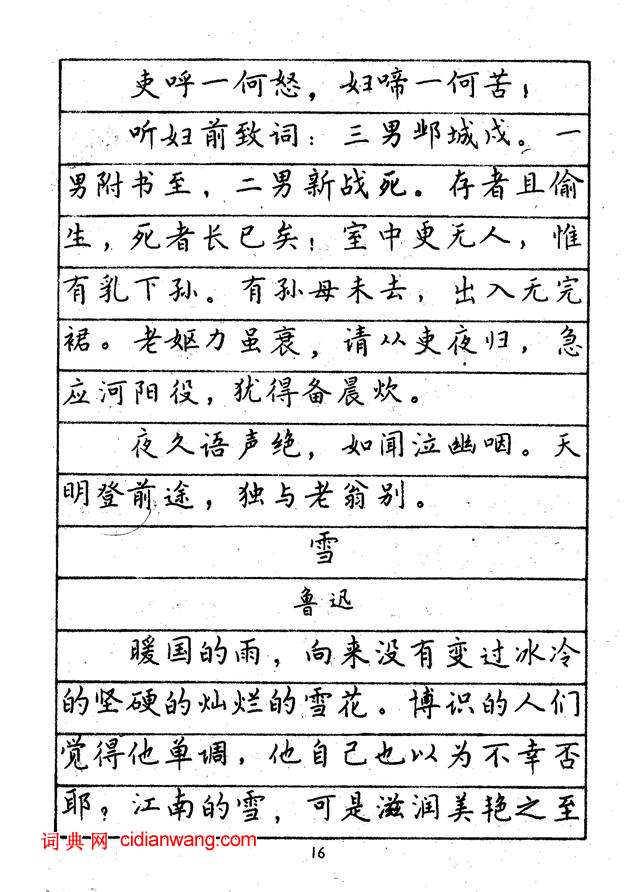 吏呼一何怒，妇啼一何苦！
听妇前致词：三男邺城戍。一
男附书至，二男新战死。存者且偷
生，死者长已矣！室中更无人，惟
有乳下孙。有孙母未去，出入无完
裙。老妪力虽衰，请从吏夜归，急
应河阳役，犹得备晨炊。
夜久语声绝，如闻泣幽咽。天
明登前途，独与老翁别。
雪
鲁迅
暖国的雨，向来没有变过冰冷
的坚硬的灿烂的雪花。博识的人们
觉得他单调，他自己也以为不幸否
耶？江南的雪，可是滋润美艳之至
词典网 cidianwang.com
16